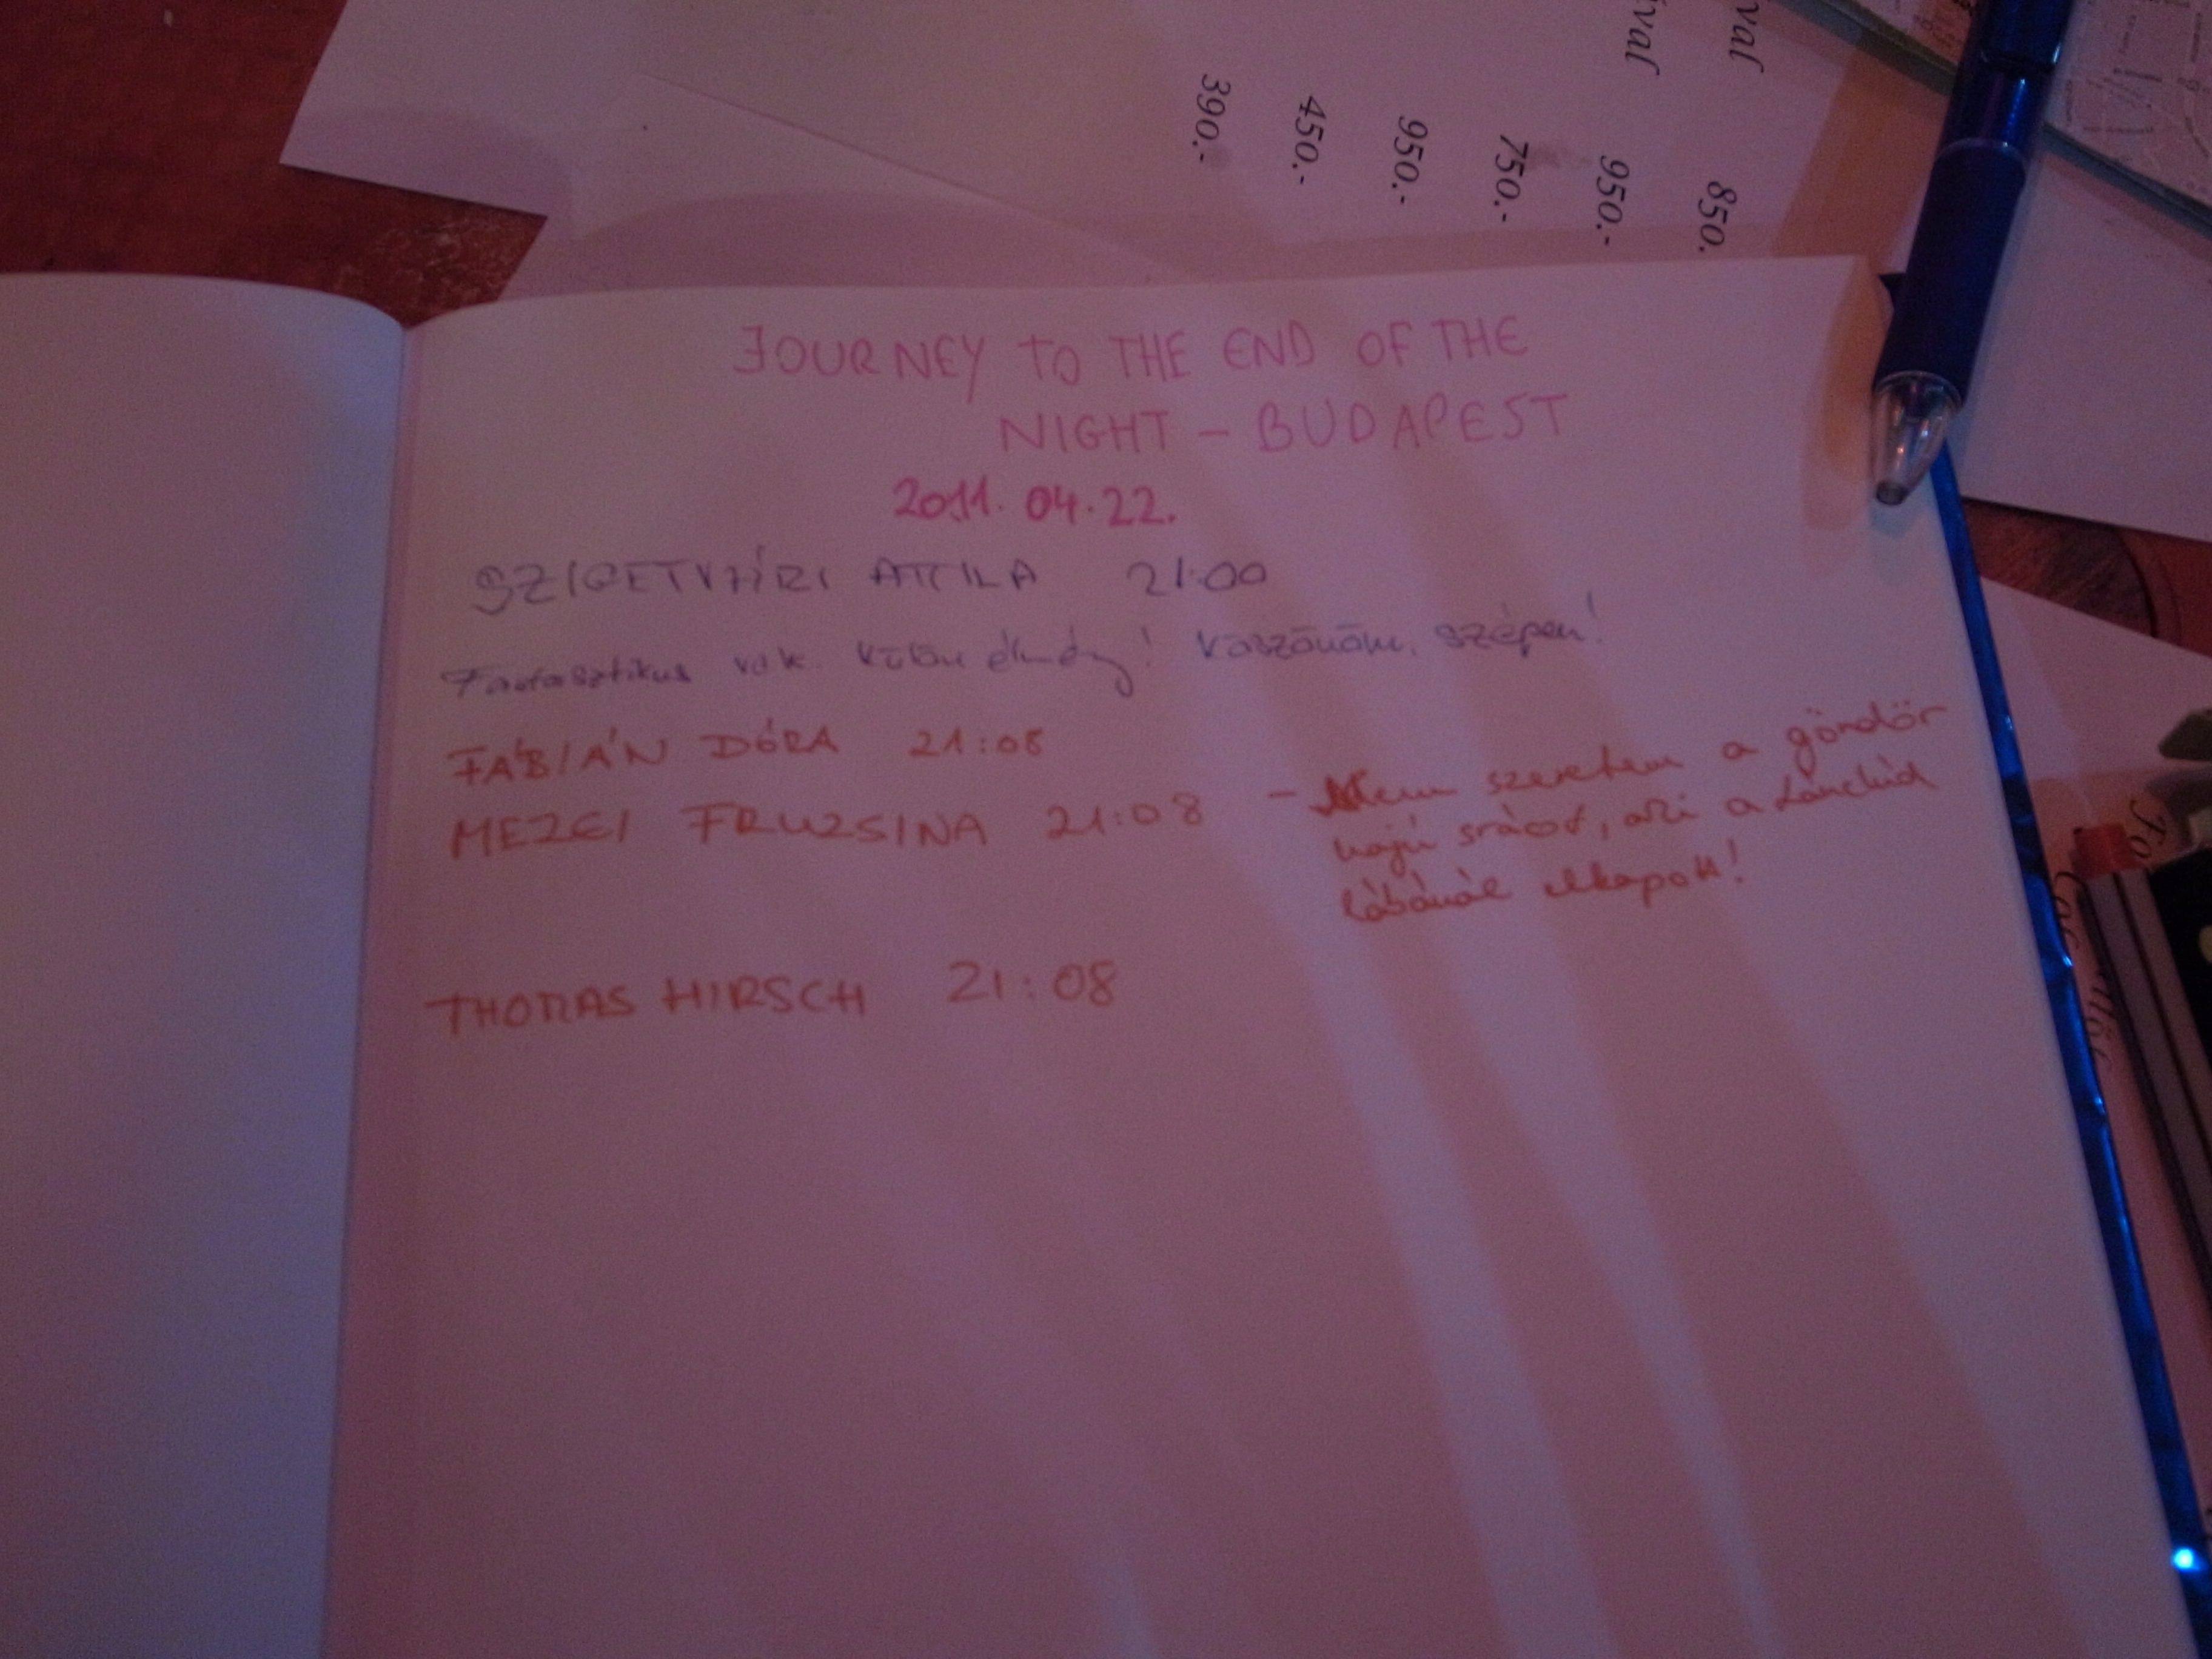 ival
val
390.-
450.-
950.-
750.-
950.-
850.
JOURNEY TO THE END OF THE
NIGHT - BUDAPEST
2011. 04. 22.
SZIGETVÁRI ATTILA 21:00
Fantasztikus volt. Külön élmény! Köszönöm szépen!
FÁBIÁN DÓRA 21:08
MEZEI FRUZSINA 21:08 - Nem szeretem a göndör
hajú srácot, aki a Lánchíd
lábánál elkapott!
THOMAS HIRSCH 21:08